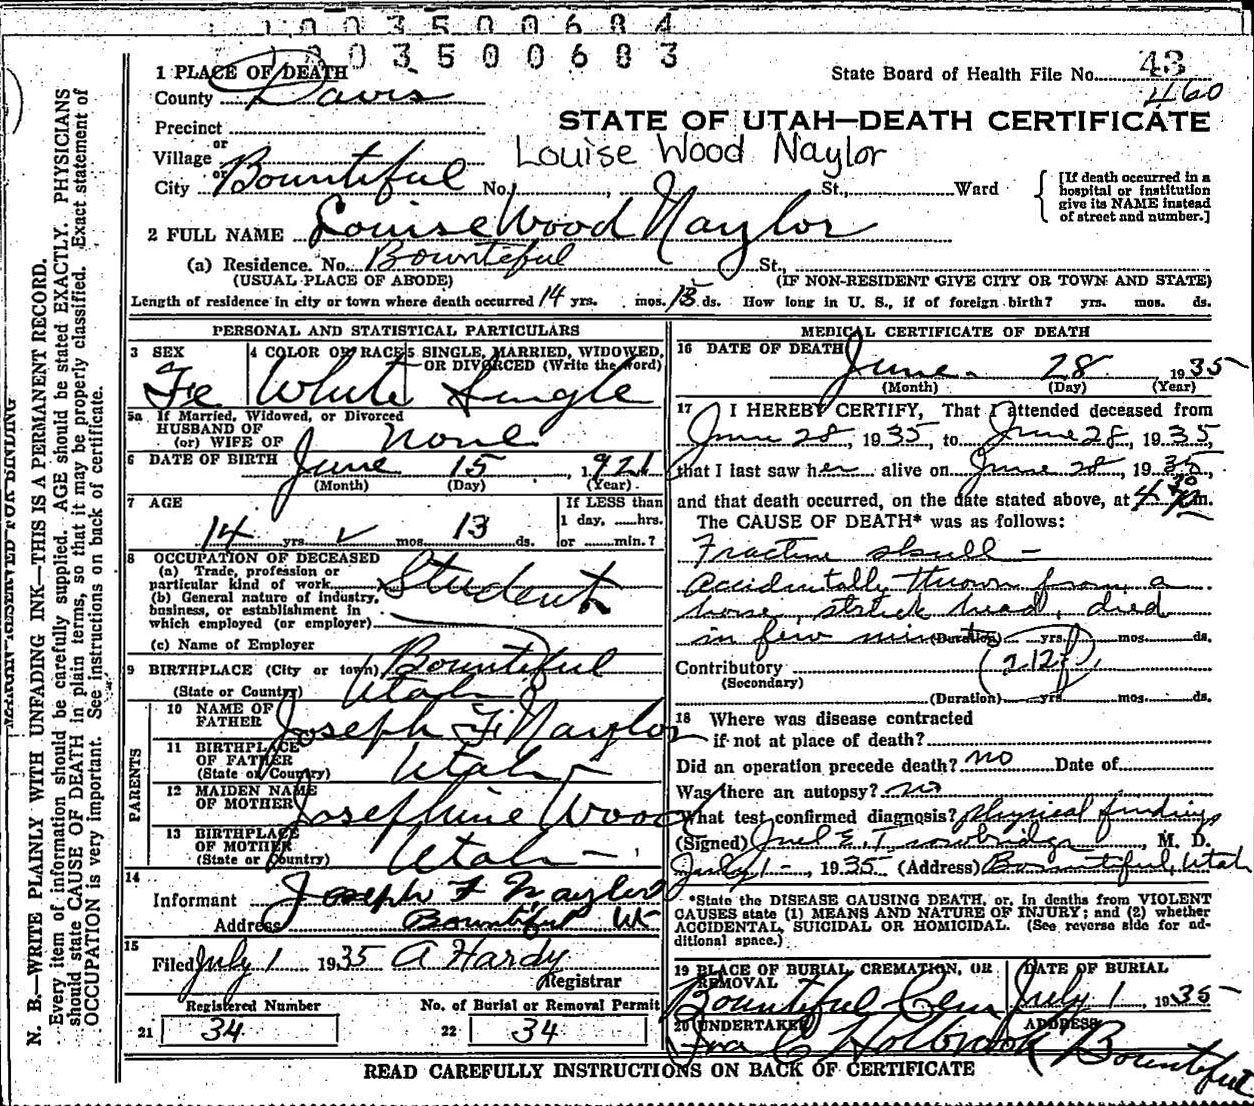 1003500684
1003500683
1 PLACE OF DEATH
County Davis
State Board of Health File No. 43
460
STATE OF UTAH—DEATH CERTIFICATE
Precinct
or
Village
Louise Wood Naylor
or
City Bountiful No. , St., Ward
[If death occurred in a hospital or institution give its NAME instead of street and number.]
2 FULL NAME Louise Wood Naylor
(a) Residence. No. Bountiful St.,
(USUAL PLACE OF ABODE) (IF NON-RESIDENT GIVE CITY OR TOWN AND STATE)
Length of residence in city or town where death occurred 14 yrs. mos. 13 ds. How long in U. S., if of foreign birth? yrs. mos. ds.
PERSONAL AND STATISTICAL PARTICULARS
3 SEX
Fe
4 COLOR OR RACE
White
5 SINGLE, MARRIED, WIDOWED, OR DIVORCED (Write the word)
Single
5a If Married, Widowed, or Divorced
HUSBAND OF
(or) WIFE OF none
6 DATE OF BIRTH June 15 1921
(Month) (Day) (Year)
7 AGE
14 yrs. mos. 13 ds.
If LESS than
1 day, hrs.
or min.?
8 OCCUPATION OF DECEASED
(a) Trade, profession or
particular kind of work Student
(b) General nature of industry,
business, or establishment in
which employed (or employer)
(c) Name of Employer
9 BIRTHPLACE (City or town) Bountiful
(State or Country) Utah
PARENTS
10 NAME OF FATHER Joseph F. Naylor
11 BIRTHPLACE OF FATHER
(State or Country) Utah
12 MAIDEN NAME OF MOTHER Josephine Wood
13 BIRTHPLACE OF MOTHER
(State or Country) Utah
14
Informant Joseph F Naylor
Address Bountiful Ut
15
Filed July 1 1935 A Hardy
Registrar
Registered Number
21 34
No. of Burial or Removal Permit
22 34
MEDICAL CERTIFICATE OF DEATH
16 DATE OF DEATH June 28 1935
(Month) (Day) (Year)
17 I HEREBY CERTIFY, That I attended deceased from
June 28, 1935, to June 28, 1935,
that I last saw her alive on June 28, 1935,
and that death occurred, on the date stated above, at 4 m.
The CAUSE OF DEATH* was as follows:
Fracture skull —
accidentally thrown from a
horse, struck head, died
in few minutes (Duration) yrs. mos. ds.
Contributory
(Secondary)
(Duration) yrs. mos. ds.
18 Where was disease contracted
if not at place of death?
Did an operation precede death? no Date of
Was there an autopsy? no
What test confirmed diagnosis? physical findings
(Signed) Joel E. Trowbridge, M. D.
July 1 - 1935 (Address) Bountiful, Utah
*State the DISEASE CAUSING DEATH, or, in deaths from VIOLENT
CAUSES state (1) MEANS AND NATURE OF INJURY; and (2) whether
ACCIDENTAL, SUICIDAL OR HOMICIDAL. (See reverse side for ad-
ditional space.)
19 PLACE OF BURIAL, CREMATION, OR REMOVAL
Bountiful Cem
DATE OF BURIAL
July 1, 1935
20 UNDERTAKER
Ira C Holbrook
ADDRESS
Bountiful
READ CAREFULLY INSTRUCTIONS ON BACK OF CERTIFICATE
MARGIN RESERVED FOR BINDING
N. B.—WRITE PLAINLY WITH UNFADING INK—THIS IS A PERMANENT RECORD.
Every item of information should be carefully supplied. AGE should be stated EXACTLY. PHYSICIANS
should state CAUSE OF DEATH in plain terms, so that it may be properly classified. Exact statement of
OCCUPATION is very important. See instructions on back of certificate.